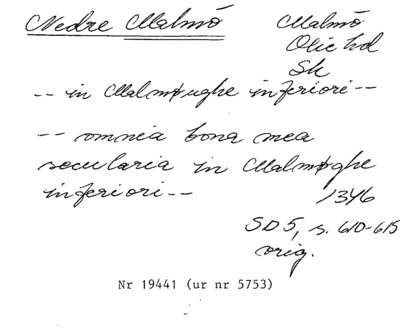 Nedre Malmö
Malmö
Oxie hd
Sk
-- in Malmøughe inferiori --
-- omnia bona mea
secularia in Malmøghe
inferiori --
1346
SD 5, s. 610-615
orig.
Nr 19441 (ur nr 5753)